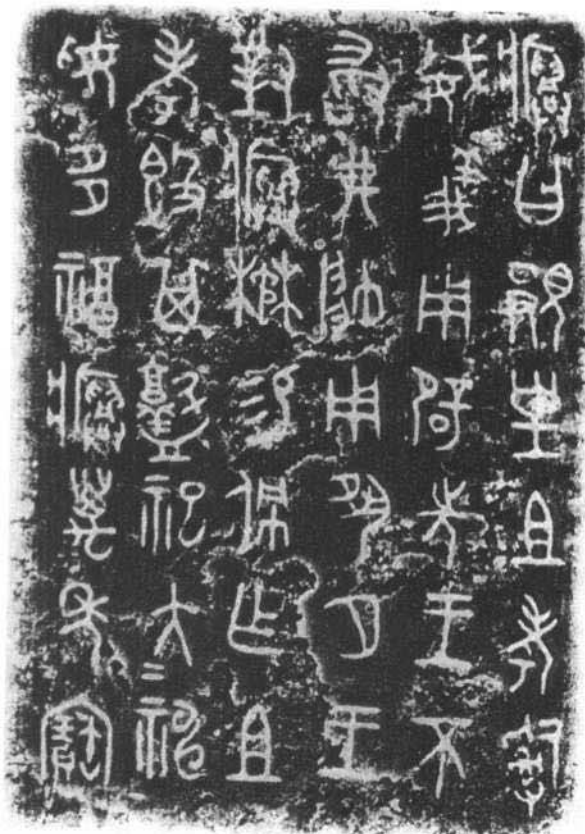 𤼈曰覭皇且考𤔲
威義用辟先王不
敢弗帥用夙夕王
對𤼈楙易佩乍且
考𣪘其𦎫祀大=神
妥多福𤼈萬年寶